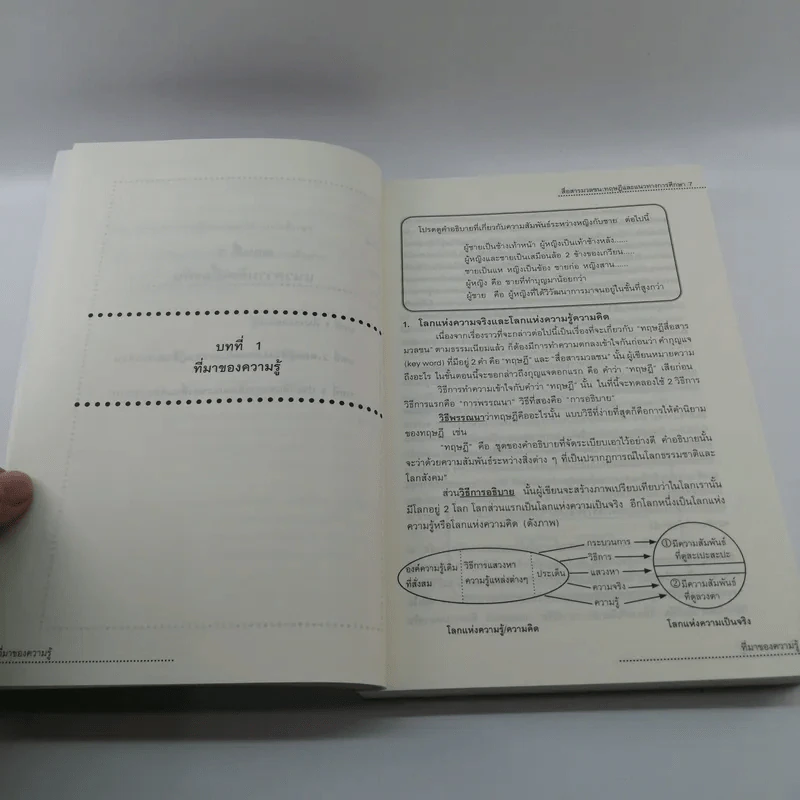 บทที่ 1
ที่มาของความรู้
ที่มาของความรู้
สื่อสารมวลชน:ทฤษฎีและแนวทางการศึกษา 7
โปรดดูคำอธิบายที่เกี่ยวกับความสัมพันธ์ระหว่างหญิงกับชาย ต่อไปนี้
ผู้ชายเป็นช้างเท้าหน้า ผู้หญิงเป็นเท้าช้างหลัง.....
ผู้หญิงและชายเป็นเสมือนล้อ 2 ข้างของเกวียน....
ชายเป็นแห หญิงเป็นข้อง ชายก่อ หญิงสาน.....
ผู้หญิง คือ ชายที่ทำบุญมาน้อยกว่า
ผู้ชาย คือ ผู้หญิงที่ได้วิวัฒนาการมาจนอยู่ในขั้นที่สูงกว่า
1. โลกแห่งความจริงและโลกแห่งความรู้ความคิด
เนื่องจากเรื่องราวที่จะกล่าวต่อไปนี้เป็นเรื่องที่จะเกี่ยวกับ "ทฤษฎีสื่อสาร
มวลชน" ตามธรรมเนียมแล้ว ก็ต้องมีการทำความตกลงเข้าใจกันก่อนว่า คำกุญแจ
(key word) ที่มีอยู่ 2 คำ คือ "ทฤษฎี" และ "สื่อสารมวลชน" นั้น ผู้เขียนหมายความ
ถึงอะไร ในขั้นตอนนี้จะขอกล่าวถึงกุญแจดอกแรก คือ คำว่า "ทฤษฎี" เสียก่อน
วิธีการทำความเข้าใจกับคำว่า "ทฤษฎี" นั้น ในที่นี้จะทดลองใช้ 2 วิธีการ
วิธีการแรกคือ "การพรรณนา" วิธีที่สองคือ "การอธิบาย"
วิธีพรรณนาว่าทฤษฎีคืออะไรนั้น แบบวิธีที่ง่ายที่สุดก็คือการให้คำนิยาม
ของทฤษฎี เช่น
"ทฤษฎี" คือ ชุดของคำอธิบายที่จัดระเบียบเอาไว้อย่างดี คำอธิบายนั้น
จะว่าด้วยความสัมพันธ์ระหว่างสิ่งต่าง ๆ ที่เป็นปรากฏการณ์ในโลกธรรมชาติและ
โลกสังคม"
ส่วนวิธีการอธิบาย นั้นผู้เขียนจะสร้างภาพเปรียบเทียบว่าในโลกเรานั้น
มีโลกอยู่ 2 โลก โลกส่วนแรกเป็นโลกแห่งความเป็นจริง อีกโลกหนึ่งเป็นโลกแห่ง
ความรู้หรือโลกแห่งความคิด (ดังภาพ)
องค์ความรู้เดิม
ที่สั่งสม
วิธีการแสวงหา
ความรู้แหล่งต่างๆ
ประเด็น
กระบวนการ
วิธีการ
แสวงหา
ความจริง
ความรู้
①มีความสัมพันธ์
ที่ดูสะเปะสะปะ
②มีความสัมพันธ์
ที่ดูลวงตา
โลกแห่งความรู้/ความคิด
โลกแห่งความเป็นจริง
ที่มาของความรู้